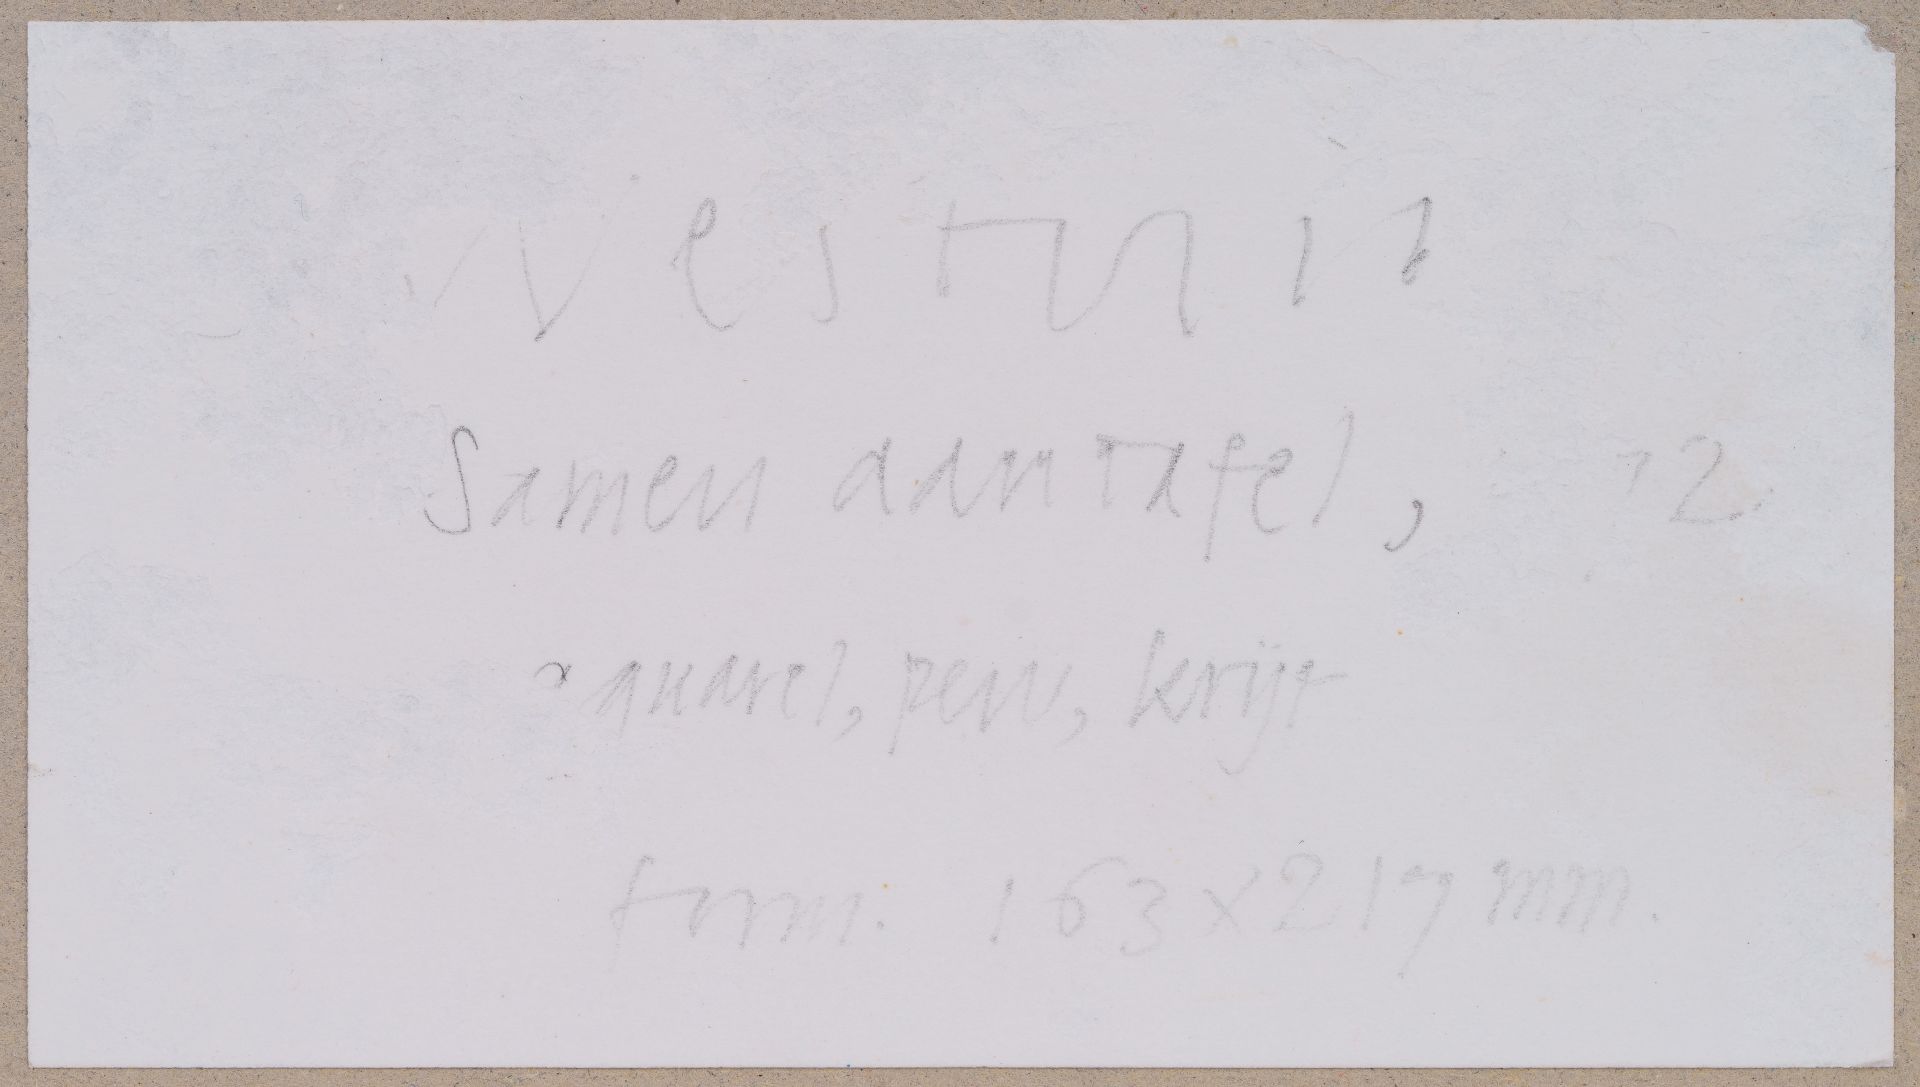 Samen aan tafel, 72
aquarel, pen, krijt
form. 163 x 217 mm.